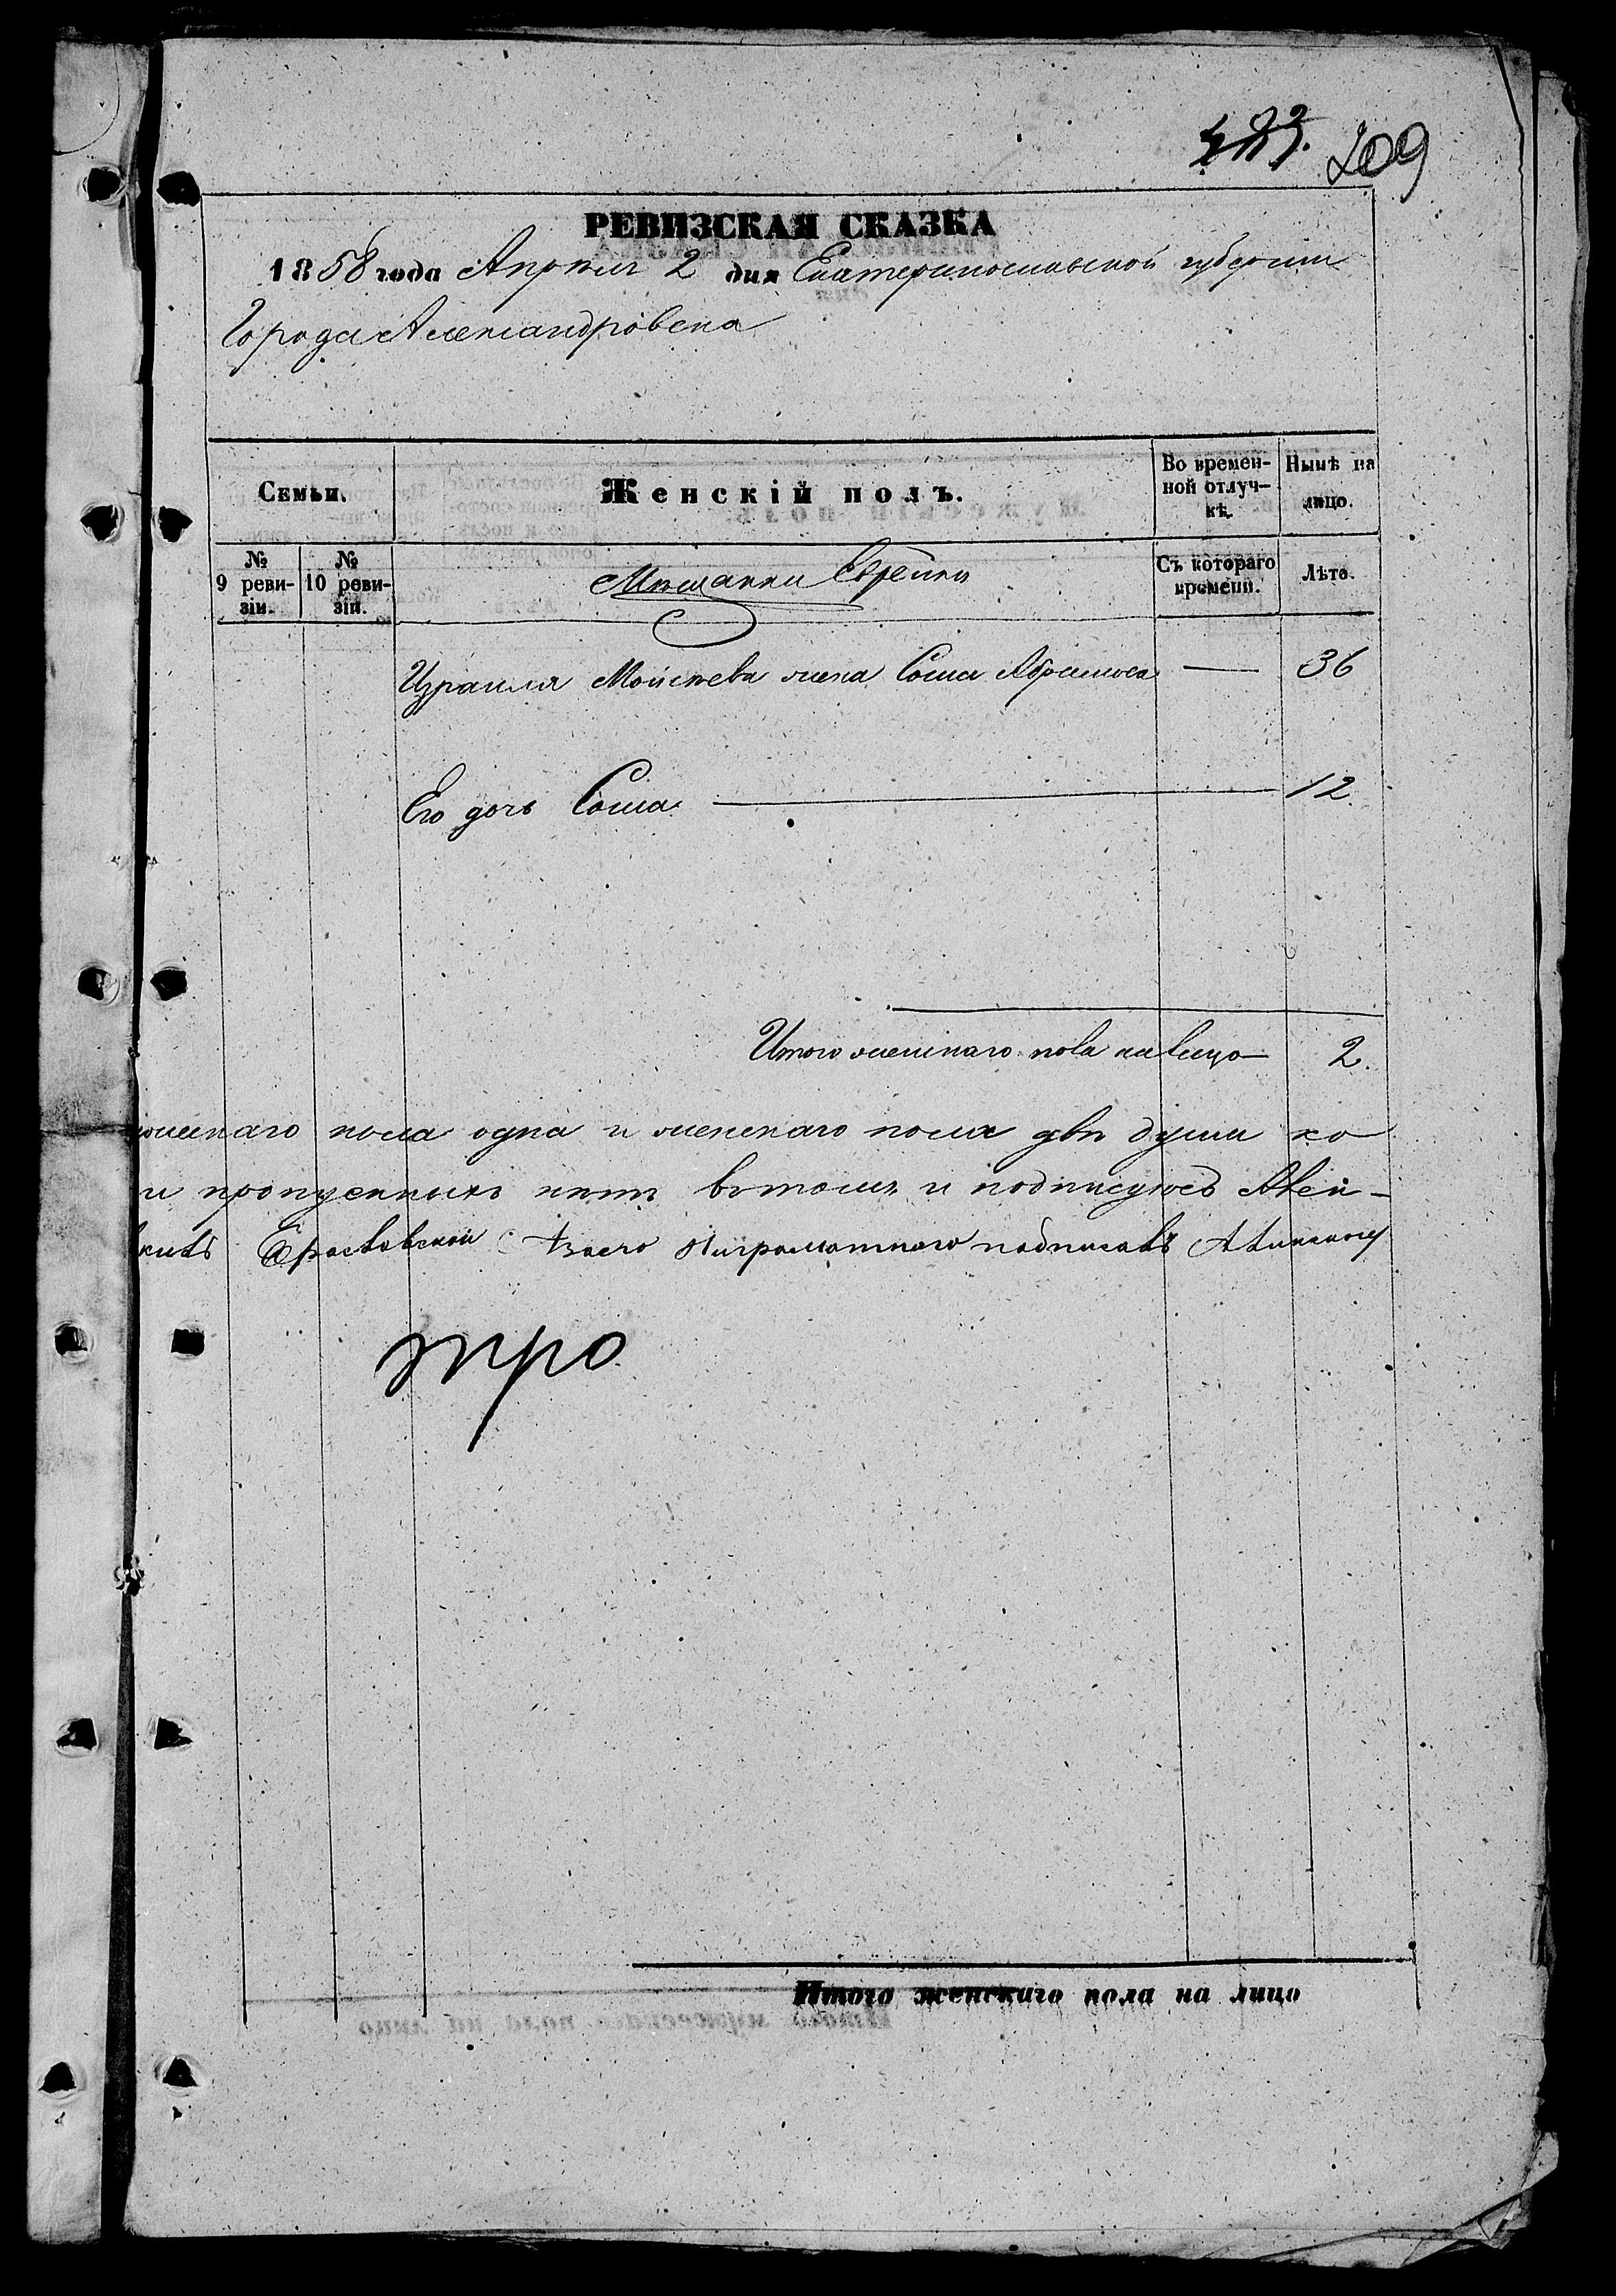 209
РЕВИЗСКАЯ СКАЗКА
1858 года Апреля 2 дня Екатеринославской губернии
Города Александровска
Семьи. Женскій полъ. Во времен-ной отлуч-кѣ. Нынѣ на лицо.
№ 9 реви-зіи. № 10 реви-зіи. Мѣщанки Еврейки Съ котораго времени. Лѣта.
Израиля Мойсѣева жена Соша Абрамова — 36
Его дочь Соша — 12.
Итого женскаго пола на лицо — 2.
пола одна и женскаго пола двѣ души ко
и пропущенныхъ нѣтъ вътомъ и подписуюсь
неграмотного подписавъ
Итого женскаго пола на лицо